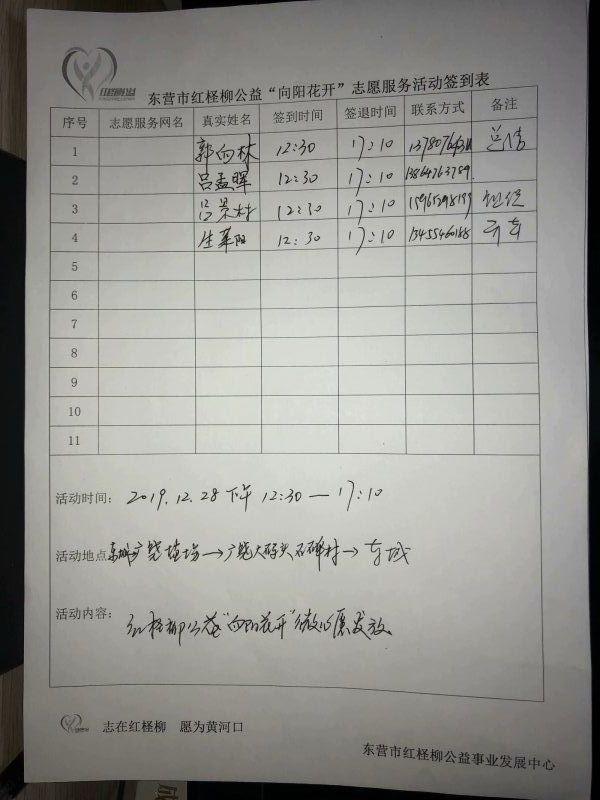 红柽柳
东营市红柽柳公益“向阳花开”志愿服务活动签到表
序号 志愿服务网名 真实姓名 签到时间 签退时间 联系方式 备注
1 郭向林 12:30 17:10
2 吕孟晖 12:30 17:10 13864763789
3 吕景村 12:30 17:10
4 生革阳 12:30 17:10 13455460188
5
6
7
8
9
10
11
活动时间: 2019.12.28 下午 12:30—17:10
活动地点: →广饶大码头 →东城
活动内容: 红柽柳公益“向阳花开”微心愿发放
志在红柽柳 愿为黄河口
东营市红柽柳公益事业发展中心